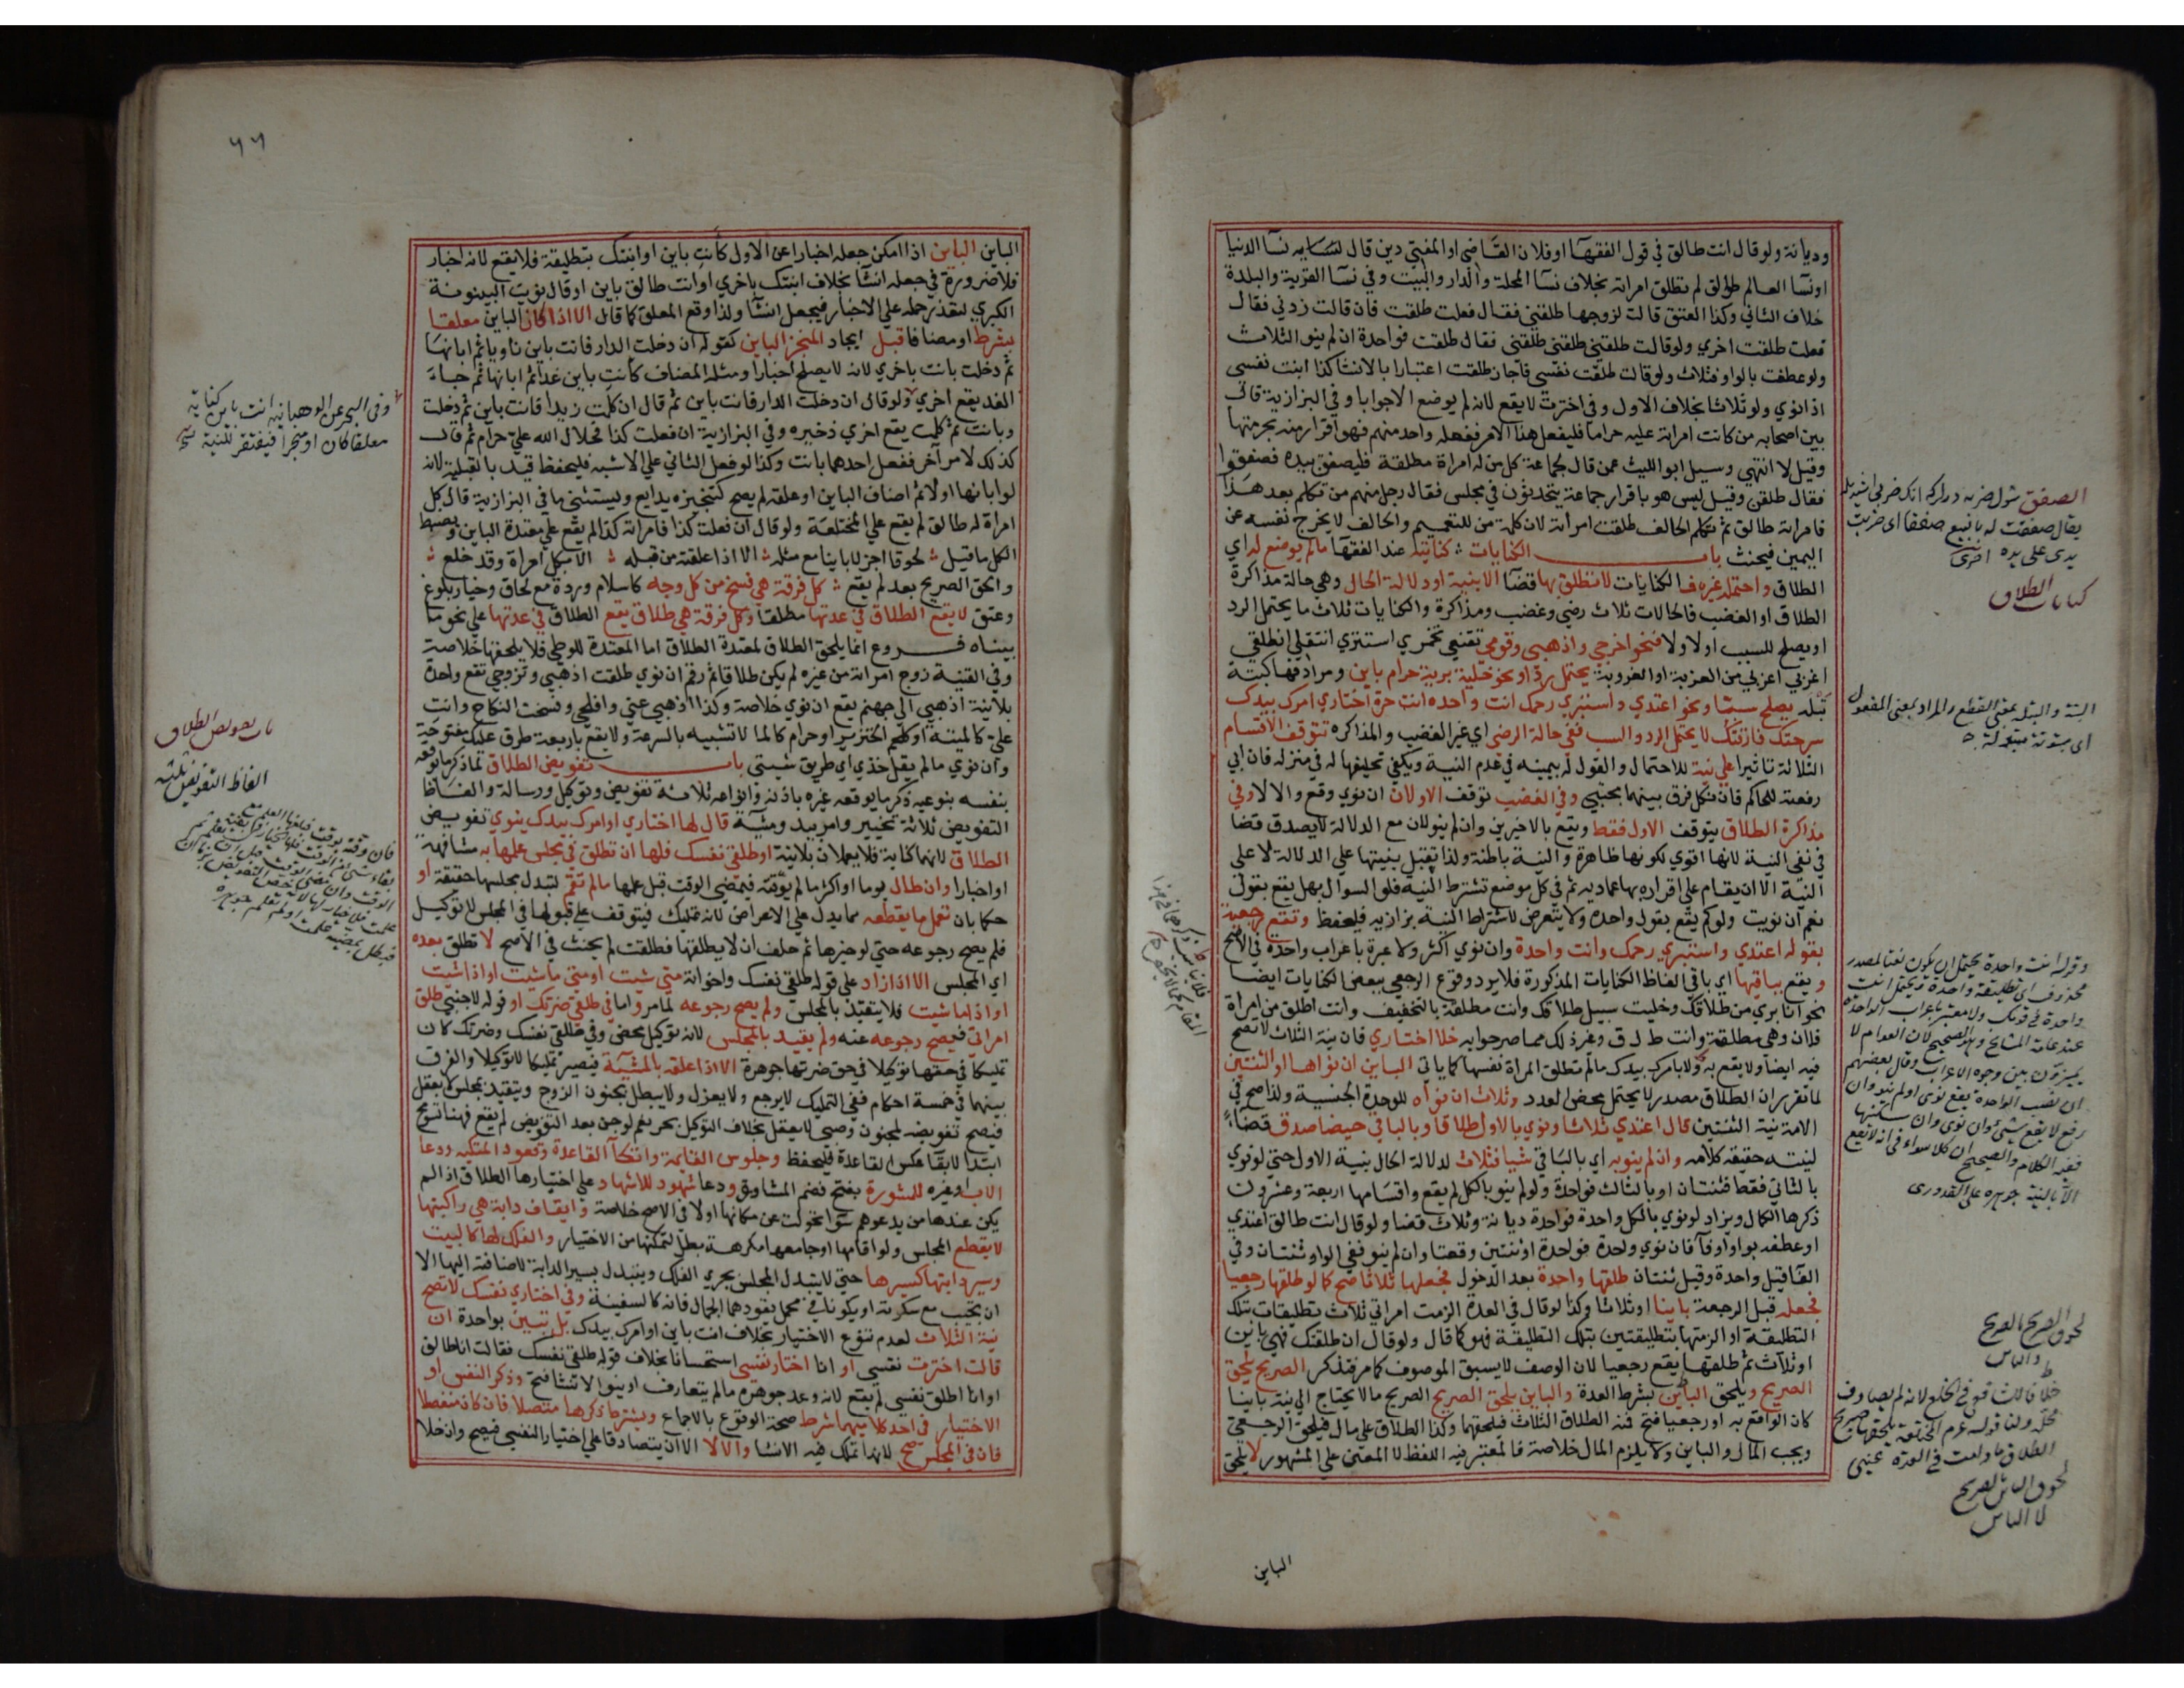 وديانة ولو قال انت طالق في قول الفقهآ او فلان القاضي او المفتي دين قال نسايه نسآ الدنيا
او نسآ العالم طوالق لم تطلق امراته بخلاف نسآ المحلة والدار والبيت وفي نسآ القرية والبلدة
خلاف الثاني وكذا العتق قالت لزوجها طلقني فقال فعلت طلقت فان قالت زدني فقال
فعلت طلقت اخري ولو قالت طلقني طلقني طلقني فقال طلقت فواحدة ان لم ينو الثلاث
ولو عطفت بالواو فثلاث ولو قالت طلقت نفسي فاجاز طلقت اعتبارا بالانشا كذا ابنت نفسي
اذا نوي ولو ثلاثا بخلاف الاول وفي اخترت لا يقع لانه لم يوضع الا جوابا وفي البزازية قال
بين اصحابه من كانت امراته عليه حراما فليفعل هذا الامر ففعله واحد منهم فهو اقرار منه بحرمتها
وقيل لا انتهي وسيل ابو الليث عمن قال لجماعة كل من له امراة مطلقة فليصفق بيده فصفقوا
فقال طلقن وقيل ليس هو باقرار جماعة يتحدثون في مجلس فقال رجل منهم من تكلم بعد هذا
فامراته طالق ثم تكلم الحالف طلقت امراته لان كلمة من للتعميم والحالف لا يخرج نفسه عن
اليمين فيحنث باب الكنايات كنايته عند الفقها ما لم يوضع له اي
الطلاق واحتمله وغيره فالكنايات لا تطلق بها قضآ الا بنية او دلالة الحال وهي حالة مذاكرة
الطلاق او الغضب فالحالات ثلاث رضي وغضب ومذاكرة والكنايات ثلاث ما يحتمل الرد
او يصلح للسبب او لا ولا فنحو اخرجي واذهبي وقومي تقنعي تخمري استتري انتقلي انطلقي
اغربي اعزبي من الغربة او العزوبة يحتمل رد او نحو خلية برية حرام باين ومرادفها كبتة
بتلة يصلح سبا ونحو اعتدي واستبري رحمك انت واحده انت حرة اختاري امرك بيدك
سرحتك فارقتك لا يحتمل الرد والسب ففي حالة الرضي اي غير الغضب والمذاكره تتوقف الاقسام
الثلاثة تاثيرا علي نية للاحتمال والقول له بيمينه في عدم النية ويكفي تحليفها له في منزله فان ابي
رفعته للحاكم فان نكل فرق بينهما مجتبي وفي الغضب توقف الاولان ان نوي وقع والا لا وفي
مذاكرة الطلاق يتوقف الاول فقط ويقع بالاخيرين وان لم ينو لان مع الدلالة لا يصدق قضا
في نفي النية لانها اقوي لكونها ظاهرة والنية باطنة ولذا تقبل بينتها علي الدلالة لا علي
النية الا ان يقام علي اقراره بها عماديه ثم في كل موضع تشترط النيه فلو السوال بهل يقع بقول
نعم ان نويت ولو كم يقع بقول واحدة ولا يتعرض لاشتراط النية بزازيه فليحفظ وتقع رجعية
بقوله اعتدي واستبري رحمك وانت واحدة وان نوي اكثر ولا عبرة باعراب واحده في الاصح
ويقع بباقيها اي باقي الفاظ الكنايات المذكورة فلا يرد وقوع الرجعي ببعض الكنايات ايضا
نحو انا بري من طلاقك وخليت سبيل طلاقك وانت مطلقة بالتخفيف وانت اطلق من امراة
فلان وهي مطلقة وانت ط ل ق وغير ذلك مما صرحوا به خلا اختاري فان نية الثلاث لا تصح
فيه ايضا ولا يقع به ولا بامرك بيدك ما لم تطلق المراة نفسها كما ياتي الباين ان نواها او الثنتين
لما تقرر ان الطلاق مصدر لا يحتمل محض العدد وثلاث ان نواه للوحدة الجنسية ولذا صح في
الامة نية الثنتين قال اعتدي ثلاثا ونوي بالاول طلاقا وبالباقي حيضا صدق قضآء
لنيته حقيقة كلامه وان لم ينو به اي بالباقي شيا فثلاث لدلالة الحال بنية الاول حتي لو نوي
بالثاني فقط فثنتان او بالثالث فواحدة ولو لم ينو بالكل لم يقع واقسامها اربعة وعشرون
ذكرها الكمال ويزاد لو نوي بالكل واحدة فواحدة ديانة وثلاث قضا ولو قال انت طالق اعتدي
او عطفه بواو او فآ فان نوي واحدة فواحدة او ثنتين وقعتا وان لم ينو ففي الواو ثنتان وفي
الفآ قيل واحدة وقيل ثنتان طلقها واحدة بعد الدخول فجعلها ثلاثا صح كما لو طلقها رجعيا
فجعله قبل الرجعة باينا او ثلاثا وكذا لو قال في العدة الزمت امراتي ثلاث تطليقات بتلك
التطليقة او الزمتها بتطليقتين بتلك التطليقة فهو كما قال ولو قال ان طلقتك فهي باين
او ثلاث ثم طلقها يقع رجعيا لان الوصف لا يسبق الموصوف كما مر فتذكر الصريح يلحق
الصريح ويلحق الباين بشرط العدة والباين يلحق الصريح الصريح ما لا يحتاج الي نية باينا
كان الواقع به او رجعيا فتح فمنه الطلاق الثلاث فيلحقهما وكذا الطلاق علي مال فيلحق الرجعي
ويجب المال والباين ولا يلزم المال خلاصة فالمعتبر فيه اللفظ لا المعني علي المشهور لا يلحق
الباين
كنايات الطلاق
البتة والبتلة بمعني القطع والمراد بمعني المفعول
اي مبتوتة مبتولة
وقوله انت واحدة يحتمل ان يكون نعتا لمصدر
محذوف اي تطليقة واحدة ويحتمل انت
الا بالنية جوهره علي القدوري
لحوق الصريح بالصريح
والباين
لحوق الباين الصريح
لا الباين
٦٦
الباين الباين اذا امكن جعله اخبارا عن الاول كانت باين او ابنتك بتطليقة فلا يقع لانه اخبار
فلا ضرورة في جعله انشآ بخلاف ابنتك باخري او انت طالق باين او قال نويت البينونة
الكبري لتعذر حمله علي الاخبار فيجعل انشآ ولذا وقع المعلق كما قال الا اذا كان الباين معلقا
بشرط او مضافا قبل ايجاد المنجز الباين كقوله ان دخلت الدار فانت باين ناويا ثم ابانها
ثم دخلت بانت باخري لانه لا يصلح اخبارا ومثله المضاف كانت باين غدا ثم ابانها ثم جاء
الغد يقع اخري ولو قال ان دخلت الدار فانت باين ثم قال ان كلمت زيدا فانت باين ثم دخلت
وبانت ثم كلمت يقع اخري ذخيره وفي البزازية ان فعلت كذا فحلال الله علي حرام ثم قال
كذلك لامر آخر ففعل احدهما بانت وكذا لو فعل الثاني علي الاشبه فليحفظ قيد بالقبلية لانه
لو ابانها اولا ثم اضاف الباين او علقه لم يصح كتنجيزه بدايع ويستثني ما في البزازية قال كل
امراة له طالق لم يقع علي المختلعة ولو قال ان فعلت كذا فامراته كذا لم يقع علي معتدة الباين ويضبط
الكل ما قيل لحوقا اجز لا باينا مع مثله الا اذا علقته من قبله الا بكل امراة وقد خلع
والحق الصريح بعد لم يقع كل فرقة هي فسخ من كل وجه كاسلام وردة مع لحاق وخيار بلوغ
وعتق لا يقع الطلاق في عدتها مطلقا وكل فرقة هي طلاق يقع الطلاق في عدتها علي نحو ما
بيناه فروع انما يلحق الطلاق لمعتدة الطلاق اما المعتدة للوطي فلا يلحقها خلاصة
وفي القنية زوج امراته من غيره لم يكن طلاقا ثم رقم ان نوي طلقت اذهبي وتزوجي تقع واحدة
بلا نية اذهبي الي جهنم يقع ان نوي خلاصة وكذا اذهبي عني وافلحي وفسخت النكاح وانت
علي كالميتة او كلحم الخنزير او حرام كالما لا تشبيه بالسرعة ولا يقع باربعة طرق عليك مفتوحة
وان نوي ما لم يقل خذي اي طريق شيتي باب تفويض الطلاق لما ذكر ما يوقعه
بنفسه بنوعيه ذكر ما يوقعه غيره باذنه وانواعه ثلاثة تفويض وتوكيل ورسالة والفاظ
التفويض ثلاثة تخيير وامر بيد ومشية قال لها اختاري او امرك بيدك ينوي تفويض
الطلاق لانها كناية فلا يعملان بلا نية او طلقي نفسك فلها ان تطلق في مجلس علمها به مشافهة
او اخبارا وان طال يوما او اكثر ما لم يوقته فيمضي الوقت قبل علمها ما لم تقم لتبدل مجلسها حقيقة او
حكما بان تعمل ما يقطعه مما يدل علي الاعراض لانه تمليك فيتوقف علي قبولها في المجلس لا توكيل
فلم يصح رجوعه حتي لو خيرها ثم حلف ان لا يطلقها فطلقت لم يحنث في الاصح لا تطلق بعده
اي المجلس الا اذا زاد علي قوله طلقي نفسك واخواته متي شيت او متي ما شيت او اذا شيت
او اذا ما شيت فلا يتقيد بالمجلس ولم يصح رجوعه لما مر واما في طلقي ضرتك او قوله لاجنبي طلق
امراتي فيصح رجوعه عنه ولم يقيد بالمجلس لانه توكيل محض وفي طلقي نفسك وضرتك كان
تمليكا في حقها توكيلا في حق ضرتها جوهرة الا اذا علقه بالمشية فيصير تمليكا لا توكيلا والفرق
بينهما في خمسة احكام ففي التمليك لا يرجع ولا يعزل ولا يبطل بجنون الزوج ويتقيد بمجلس لا بعقل
فيصح تفويضه لمجنون وصبي لا يعقل بخلاف التوكيل بحر نعم لو جن بعد التفويض لم يقع فهنا تسومح
ابتدا لا بقآ عكس القاعدة فليحفظ وجلوس القايمة واتكآ القاعدة وقعود المتكيه ودعا
الاب او غيره للمشورة بفتح فضم المشاورة ودعا شهود للاشهاد علي اختيارها الطلاق اذا لم
يكن عندها من يدعوهم سوا تحولت عن مكانها او لا في الاصح خلاصة وايقاف دابة هي راكبتها
لا يقطع المجلس ولو اقامها او جامعها مكرهة بطل لتمكنها من الاختيار والفلك لها كالبيت
وسير دابتها كسيرها حتي لا يتبدل المجلس بجري الفلك ويتبدل بسير الدابة لاضافته اليها الا
ان تجيب مع سكوته او يكونا في محمل يقودهما الجمال فانه كالسفينة وفي اختاري نفسك لا تصح
نية الثلاث لعدم تنوع الاختيار بخلاف انت باين او امرك بيدك بل تبين بواحدة ان
قالت اخترت نفسي او انا اختار نفسي استحسانا بخلاف قوله طلقي نفسك فقالت انا طالق
او انا اطلق نفسي لم يقع لانه وعد جوهره ما لم يتعارف او ينو الانشا فتح وذكر النفس او
الاختيار في احد كلاميهما شرط صحة الوقوع بالاجماع ويشترط ذكرها متصلا فان كان منفصلا
فان في المجلس صح لانها تملك فيه الانشا والا لا الا ان يتصادقا علي اختيار النفس فيصح وان خلا
وفي البحر عن الوهبانيه انت باين كناية
معلقا كان او منجزا فيفتقر للنية
باب تفويض الطلاق
الفاظ التفويض ثلثه